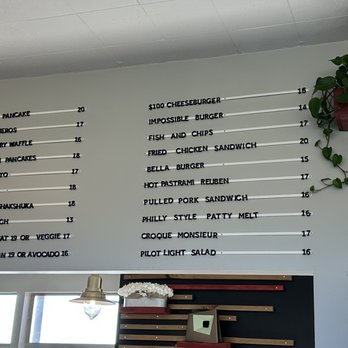 PANCAKE 20
EROS 17
RY WAFFLE 16
PANCAKES 18
TO 17
18
HAKSHUKA 18
CH 13
AT 19 OR VEGGIE 17
ON 19 OR AVOCADO 16
$100 CHEESEBURGER 15
IMPOSSIBLE BURGER 14
FISH AND CHIPS 17
FRIED CHICKEN SANDWICH 20
BELLA BURGER 15
HOT PASTRAMI REUBEN 17
PULLED PORK SANDWICH 16
PHILLY STYLE PATTY MELT 16
CROQUE MONSIEUR 17
PILOT LIGHT SALAD 16